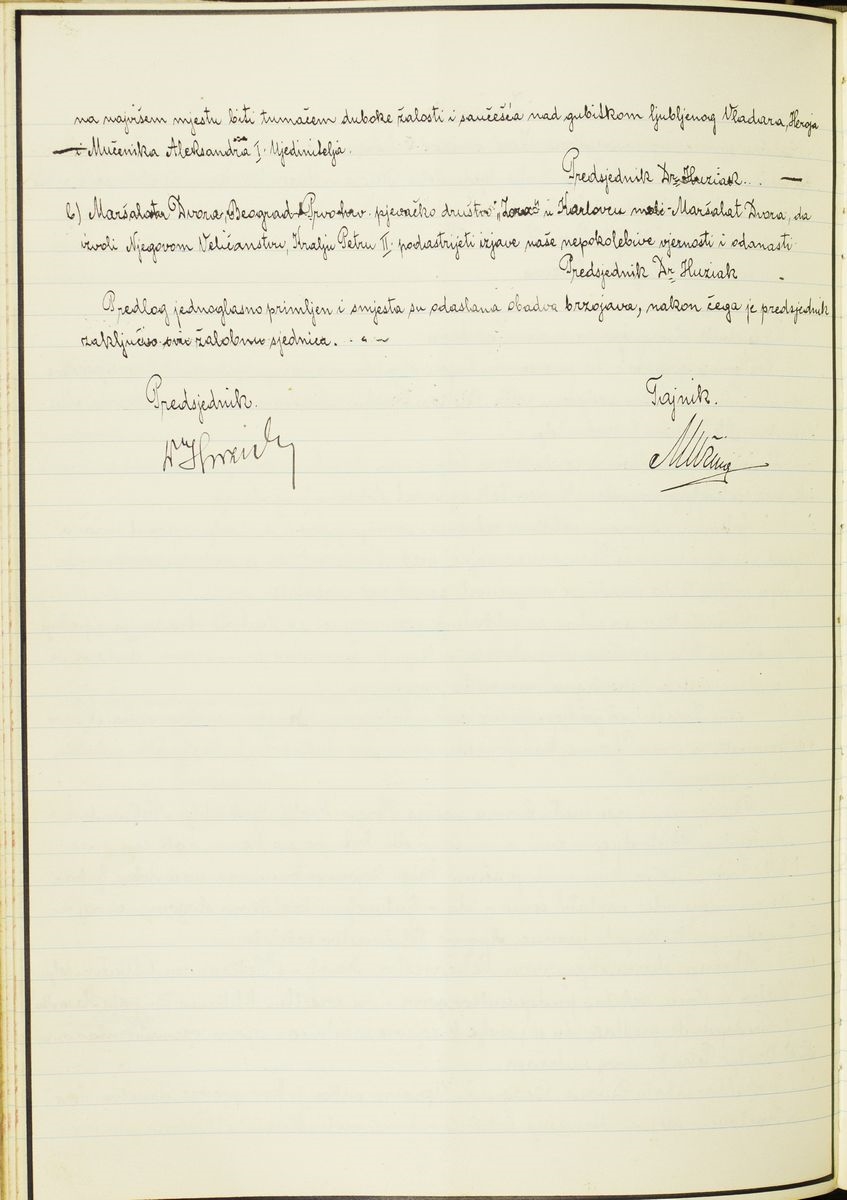 na najvišem mjestu biti tumačem duboke žalosti i saučešća nad gubitkom ljubljenog Vladara, Heroja
i Mučenika Aleksandra I. Ujedinitelja.
Predsjednik Dr Huziak.
6) Maršalatu Dvora, Beograd - Prvo hrv. pjevačko društvo "Zora" u Karlovcu moli Maršalat Dvora, da
izvoli Njegovom Veličanstvu, Kralju Petru II. podastrijeti izjave naše nepokolebive vjernosti i odanosti
Predsjednik Dr Huziak
Predlog jednoglasno primljen i smjesta su odaslana obadva brzojava, nakon čega je predsjednik
zaključio ovu žalobnu sjednicu.
Predsjednik. Tajnik.
Dr Huziak